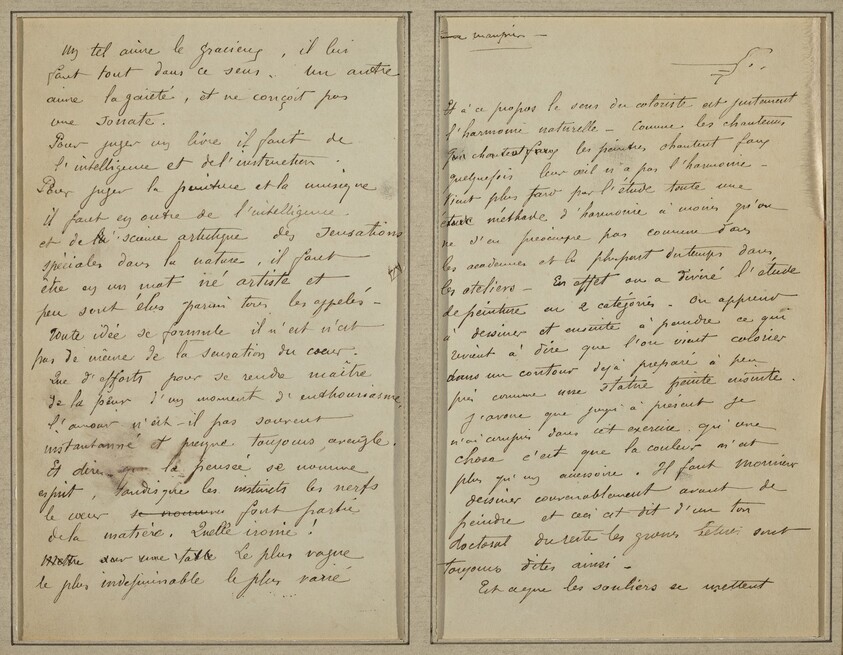 Un tel aime le gracieux, il lui
faut tout dans ce sens. Un autre
aime la gaieté, et ne conçoit pas
une sonate.
Pour juger un livre il faut de
l'intelligence et de l'instruction.
Pour juger la peinture et la musique
il faut en outre de l'intelligence
et de la science artistique des sensations
spéciales dans la nature, il faut
être en un mot né artiste et
peu sont élus parmi tous les appelés -
Toute idée se formule il n'est n'est
pas de même de la sensation du cœur.
Que d'efforts pour se rendre maître
de la peur d'un moment d'enthousiasme.
l'amour n'est-il pas souvent
instantanné et presque toujours aveugle.
Et dire que la pensée se nomme
esprit, tandisque les instincts les nerfs
le cœur se nomme font partie
de la matière. Quelle ironie !
Mettre sur une table Le plus vague
le plus indéfinissable le plus varié
Et à ce propos le sens du coloriste est justement
l'harmonie naturelle - Comme les chanteurs
chantent faux les peintres chantent faux
quelquefois leur œil n'a pas l'harmonie -
Vient plus tard par l'étude toute une
méthode d'harmonie à moins qu'on
ne s'en préoccupe pas comme dans
les académies et la plupart du temps dans
les ateliers - En effet on a divisé l'étude
de peinture en 2 catégories. On apprend
à dessiner et ensuite à peindre ce qui
revient à dire que l'on vient colorier
dans un contour déjà préparé à peu
près comme une statue peinte ensuite.
J'avoue que jusqu'à présent je
n'ai compris dans cet exercice qu'une
chose c'est que la couleur n'est
plus qu'un accessoire. Il faut Monsieur
dessiner convenablement avant de
peindre et ceci est dit d'un ton
doctoral du reste les grosses bêtises sont
toujours dites ainsi -
Est ce que les souliers se mettent